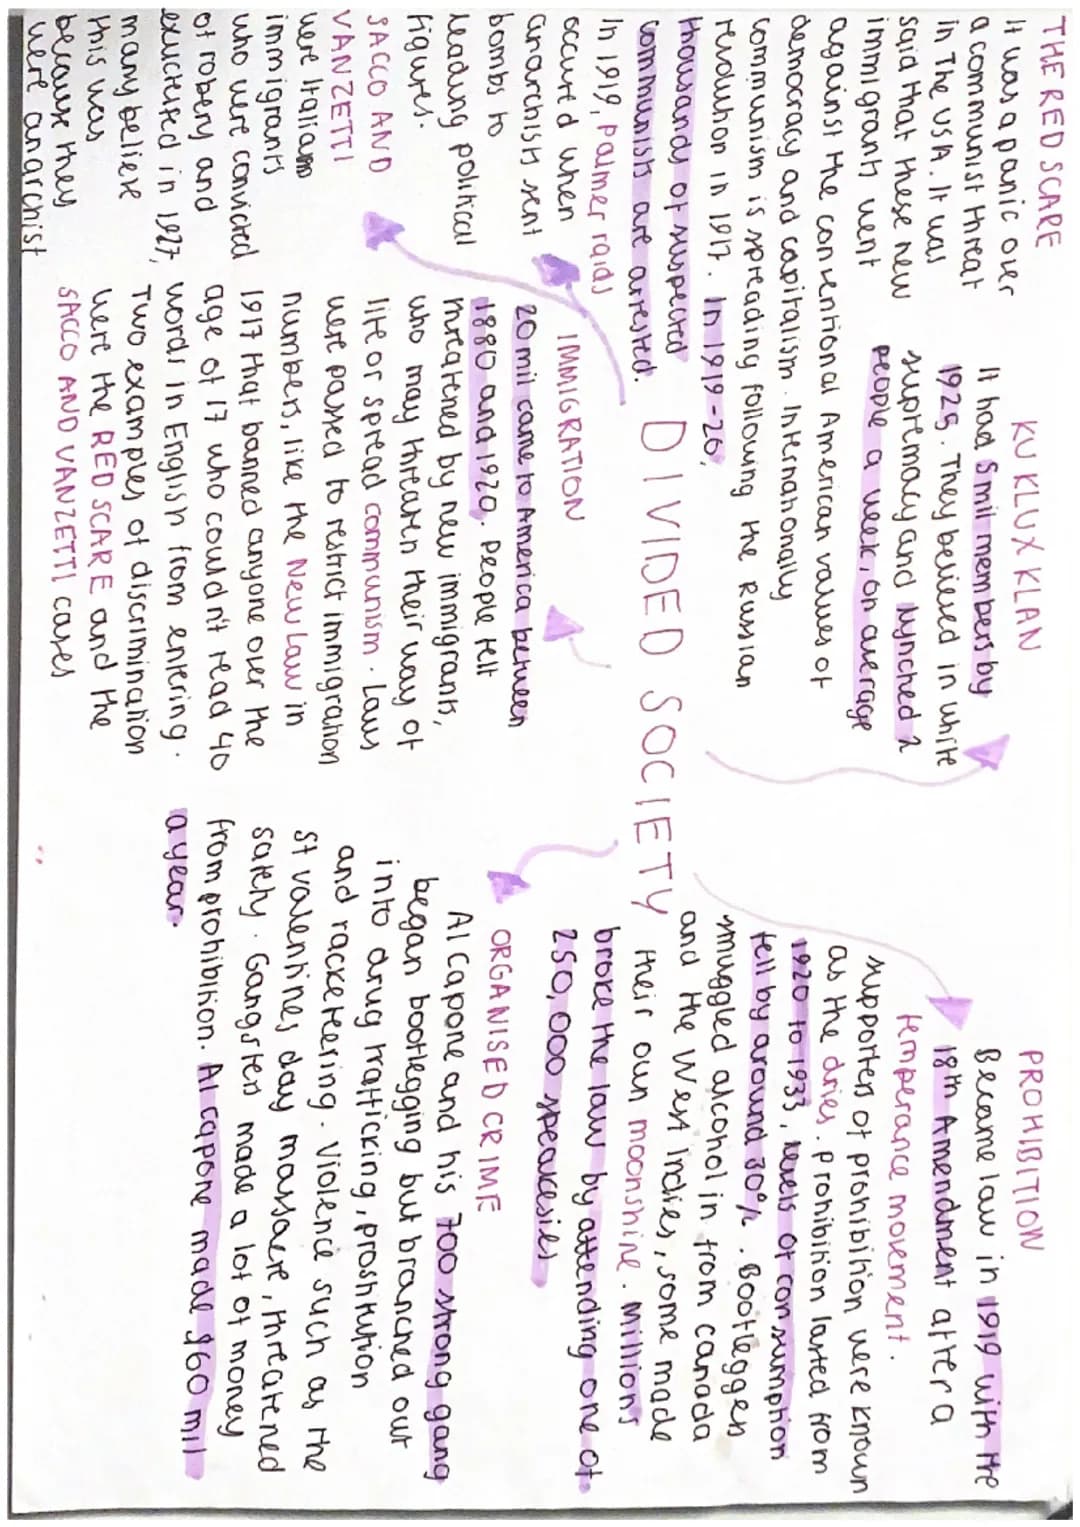 DIVIDED SOCIETY
THE RED SCARE
It was a panic over
a communist threat
in The USA. It was
said that these new
immigrants went
against the conventional American values of
democracy and capitalism. Internationally
communism is spreading following the Russian
revolution in 1917. In 1919-20,
thousands of suspected
communists are arrested.
In 1919, palmer raids
occured when
anarchists sent
bombs to
leading political
figures.
SACCO AND
VANZETTI
were Italian
immigrants
who were convicted
of robery and
exucted in 1927,
many believe
this was
because they
were anarchist
KU KLUX KLAN
It had 5 mil members by
1925. They believed in white
supremacy and lynched 2
people a week, on average
IMMIGRATION
20 mil came to America between
1880 and 1920. People felt
threatened by new immigrants,
who may threaten their way of
life or spread communism. Laws
were passed to restrict immigration
numbers, like the New Law in
1917 that banned anyone over the
age of 17 who couldn't read 40
words in English from entering.
Two examples of discrimination
were the RED SCARE and the
SACCO AND VANZETTI cases
PROHIBITION
Became law in 1919 with the
18th Amendment after a
temperance movement.
supporters of prohibition were known
as the dries. prohibition lasted from
1920 to 1933, levels of consumption
fell by around 30%. Bootleggers
smuggled alcohol in from canada
and the West Indies, some made
their own moonshine. Millions
broke the law by attending one of
250,000 speakesies
ORGANISED CRIME
Al Capone and his 700 strong gang
began bootlegging but branched out
into drug trafficking, prostitution
and racketeering. Violence such as the
St valentines day massacre, threatened
safety. Gangsters made a lot of money
from prohibition. Al capone made $60 mil
a year.